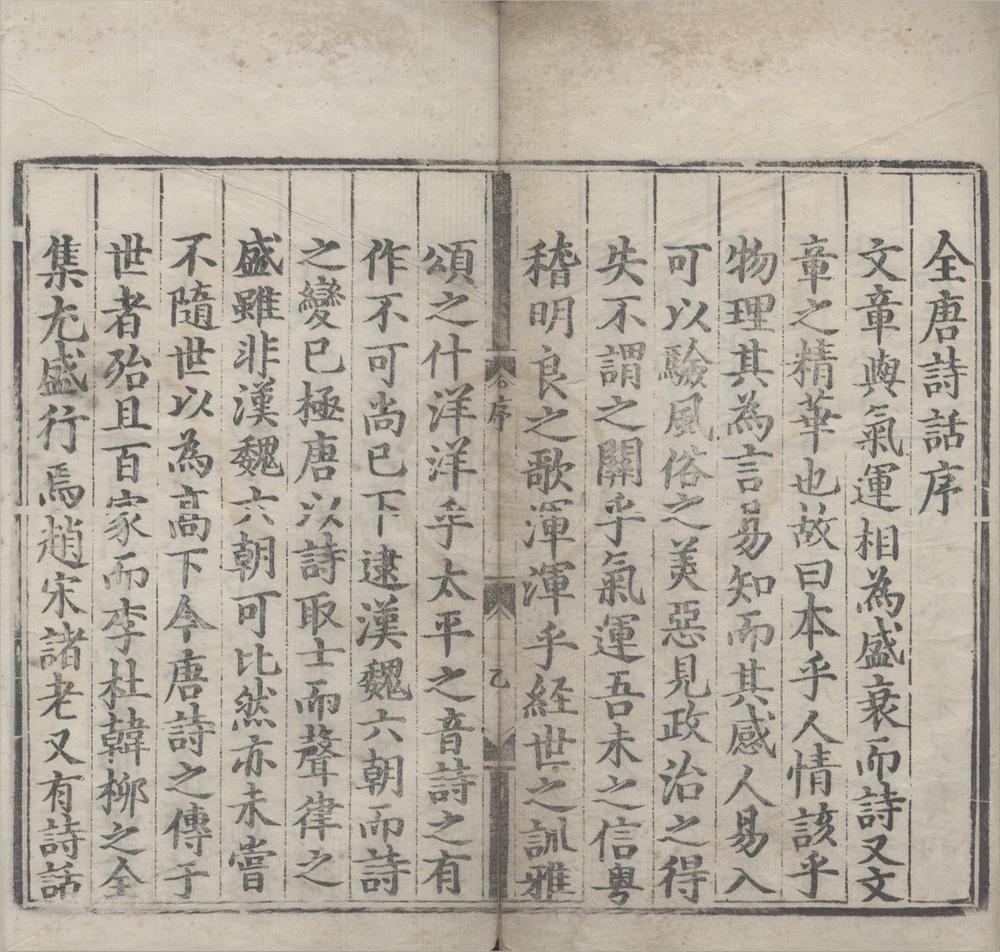 全唐詩話序
文章與氣運相為盛衰而詩又文
章之精華也故曰本乎人情該乎
物理其為言易知而其感人易入
可以驗風俗之美惡見政治之得
失不謂之關乎氣運吾未之信粤
稽明良之歌渾渾乎經世之訓雅
全序
乙
頌之什洋洋乎太平之音詩之有
作不可尚已下逮漢魏六朝而詩
之變已極唐以詩取士而聲律之
盛雖非漢魏六朝可比然亦未嘗
不隨世以為高下今唐詩之傳于
世者殆且百家而李杜韓柳之全
集尤盛行焉趙宋諸老又有詩話